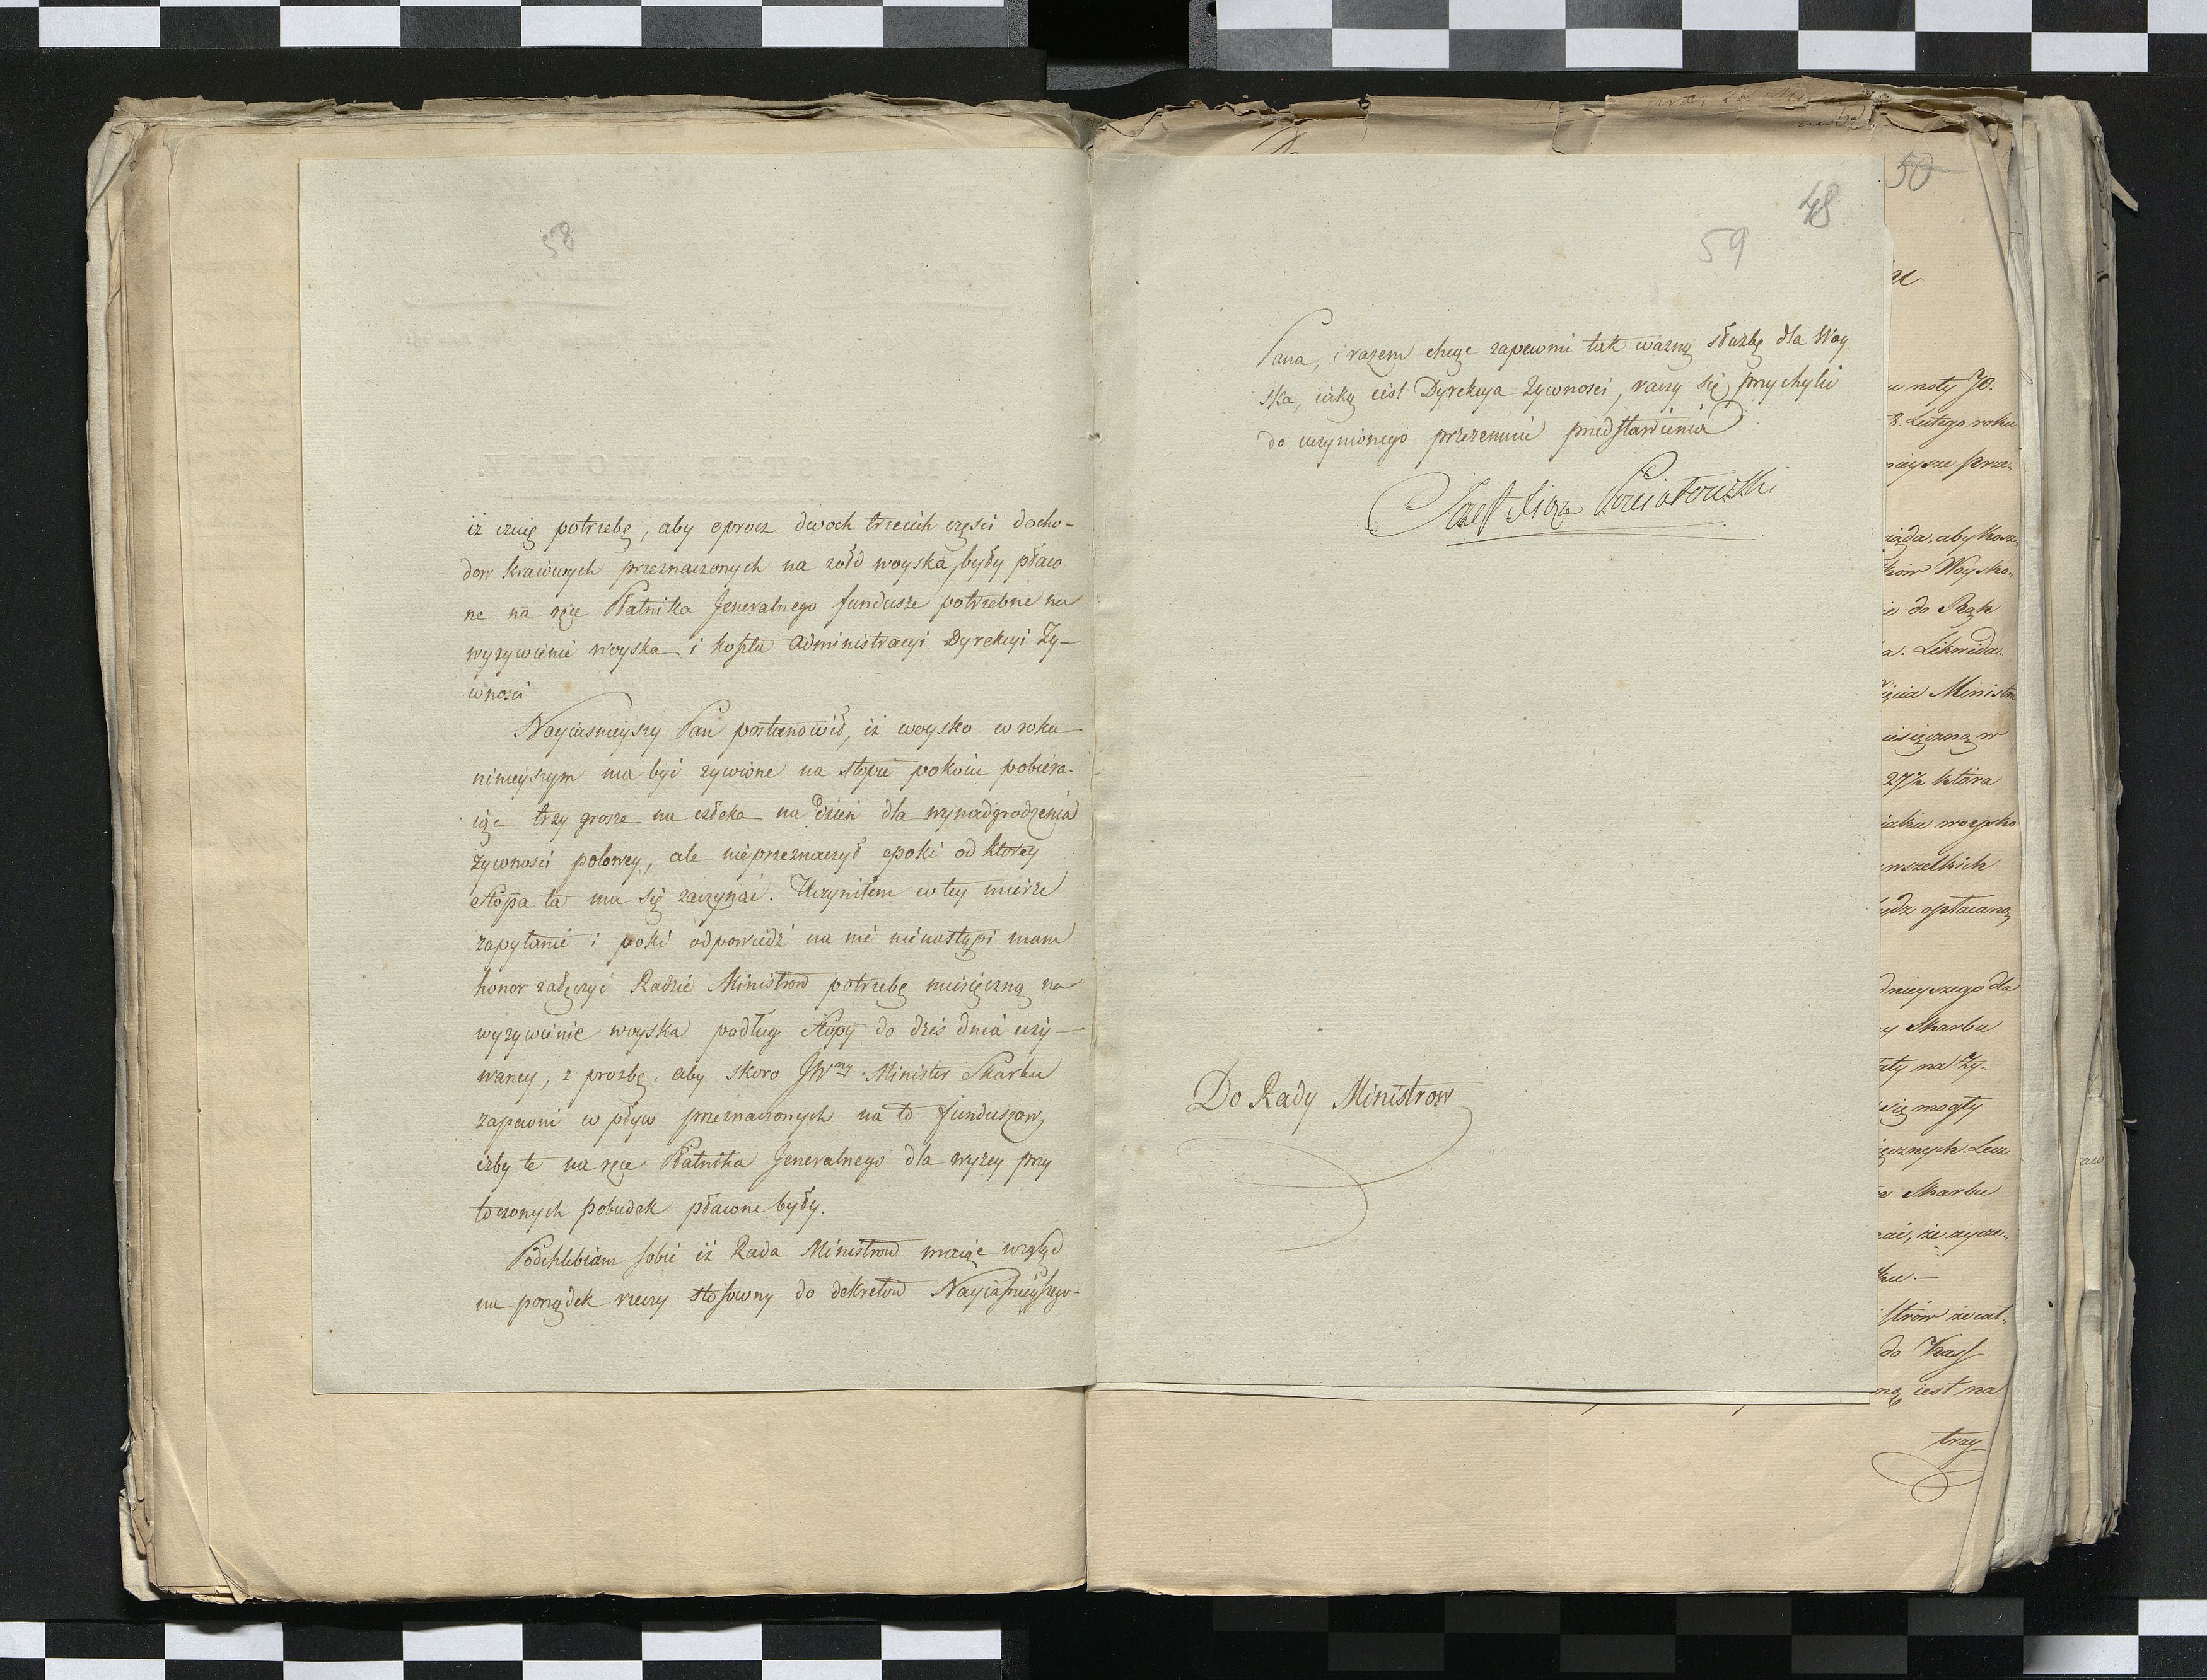 58
iż czuię potrzebę, aby oprocz dwoch trzecich części docho-
dow kraiowych przeznaczonych na żołd woyska, były płaco
ne na ręce Płatnika Jeneralnego fundusze potrzebne na
wyzywienie woyska i koszta Administracyi Dyrekcyi Ży-
wnosci
Nayiasnieyszy Pan postanowił, iż woysko w roku
ninieyszym ma być zywione na stopie pokoiu pobiera-
iąc trzy grosze na człeka na dzień dla wynadgrodzenia
żywnosci polowey, ale nieprzeznaczył epoki od ktorey
stopa ta ma się zaczynać. Uczyniłem w tey mierze
zapytanie i poki odpowiedź na nie nienastąpi mam
honor załączyć Radzie Ministrow potrzebę miesięczną na
wyzywienie woyska podług stopy do dziś dnia uży-
waney, z prozbą, aby skoro JWny Minister Skarbu
zapewni wpływ przeznaczonych na to funduszow,
iżby te na ręce Płatnika Jeneralnego dla wyzey przy
toczonych pobudek płacone były.
Podchlebiam sobie iż Rada Ministrow maiąc wzgląd
na porządek rzeczy stosowny do dekretow Nayiasnieyszego
48
59
Pana, i razem chcąc zapewnić tak ważną służbę dla Woy
ska, iaką iest Dyrekcya Żywnosci, raczy się przychylić
do uczynionego przezemnie przedstawienia
Józef Xiąże Poniatowski
Do Rady Ministrow
50
noty JO.
8. Lutego roku
aby
Woysko-
do Rąk
Likwida-
Ministra
w
27/2 która
woysko
wszelkich
opłacaną
dla
Skarbu
na Ży-
się mogły
Lecz
Skarbu
że życze-
do Kass
iest na
trzy